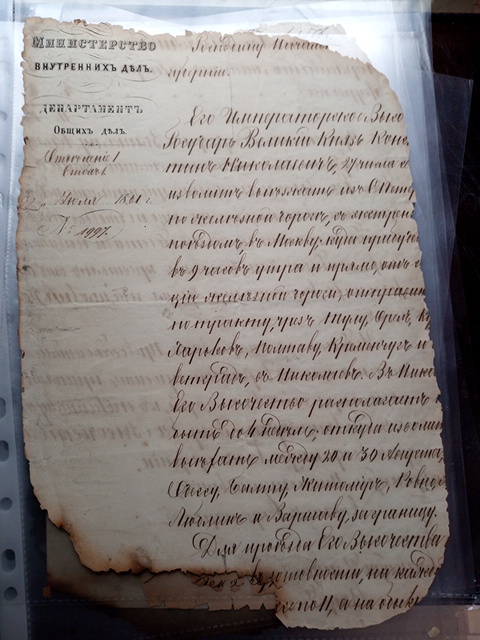 Министерство
внутреннихъ дѣлъ.
Департаментъ
Общихъ дѣлъ.
Отдѣленіе 1
Столъ 1
Іюля 1861 г.
№ 1997.
Господину Начал
Его Императорское Высо
Государь Великій Князь Конс
тинъ Николаевичъ, числа с
изволитъ выѣзжать изъ С Пет
по желѣзной дорогѣ, съ экстрен
поѣздомъ, въ Москву, куда прибуд
въ 9 часовъ утра и прямо, отъ с
ціи желѣзной дороги, отправи
по тракту, чрезъ Тулу, Орелъ, Ку
Харьковъ, Полтаву, Кременчугъ и
ветградъ, въ Николаевъ. Въ Нико
Его Высочество располагаетъ
быть до 4 дней, откуда изволит
выѣхать между 20 и 30 Августа,
Одессу, Балту, Житоміръ, Ровно
Люблинъ и Варшаву, за границу.
Для проѣзда Его Высочества
готовности, на каждой
а на обык